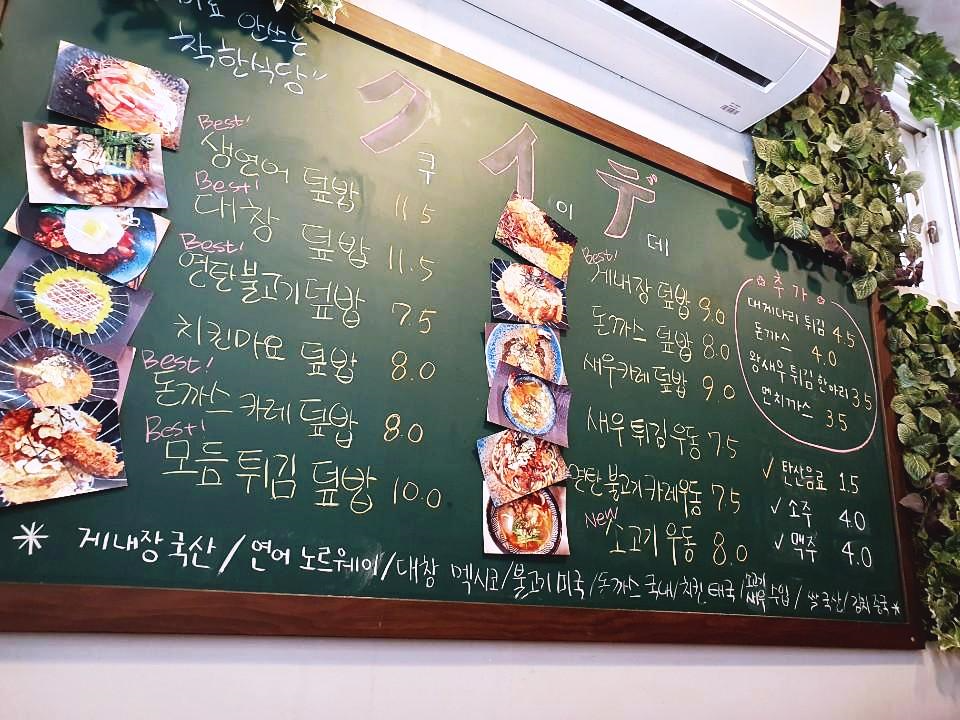 안쓰는
착한식당"
クイデ
쿠 이 데
Best!
생연어 덮밥 11.5
Best!
대창 덮밥 11.5
Best!
연탄불고기덮밥 7.5
치킨마요 덮밥 8.0
Best!
돈까스 카레 덮밥 8.0
Best!
모듬튀김 덮밥 10.0
Best!
게내장 덮밥 9.0
돈까스 덮밥 8.0
새우카레덮밥 9.0
새우튀김우동 7.5
연탄불고기카레우동 7.5
New
소고기 우동 8.0
추가
대게다리튀김 4.5
돈까스 4.0
왕새우튀김한마리 3.5
멘치까스 3.5
✓ 탄산음료 1.5
✓ 소주 4.0
✓ 맥주 4.0
* 게내장국산/연어 노르웨이/대창 멕시코/불고기미국/돈까스 국내/치킨 태국/소고기 새우 수입/쌀국산/김치중국*